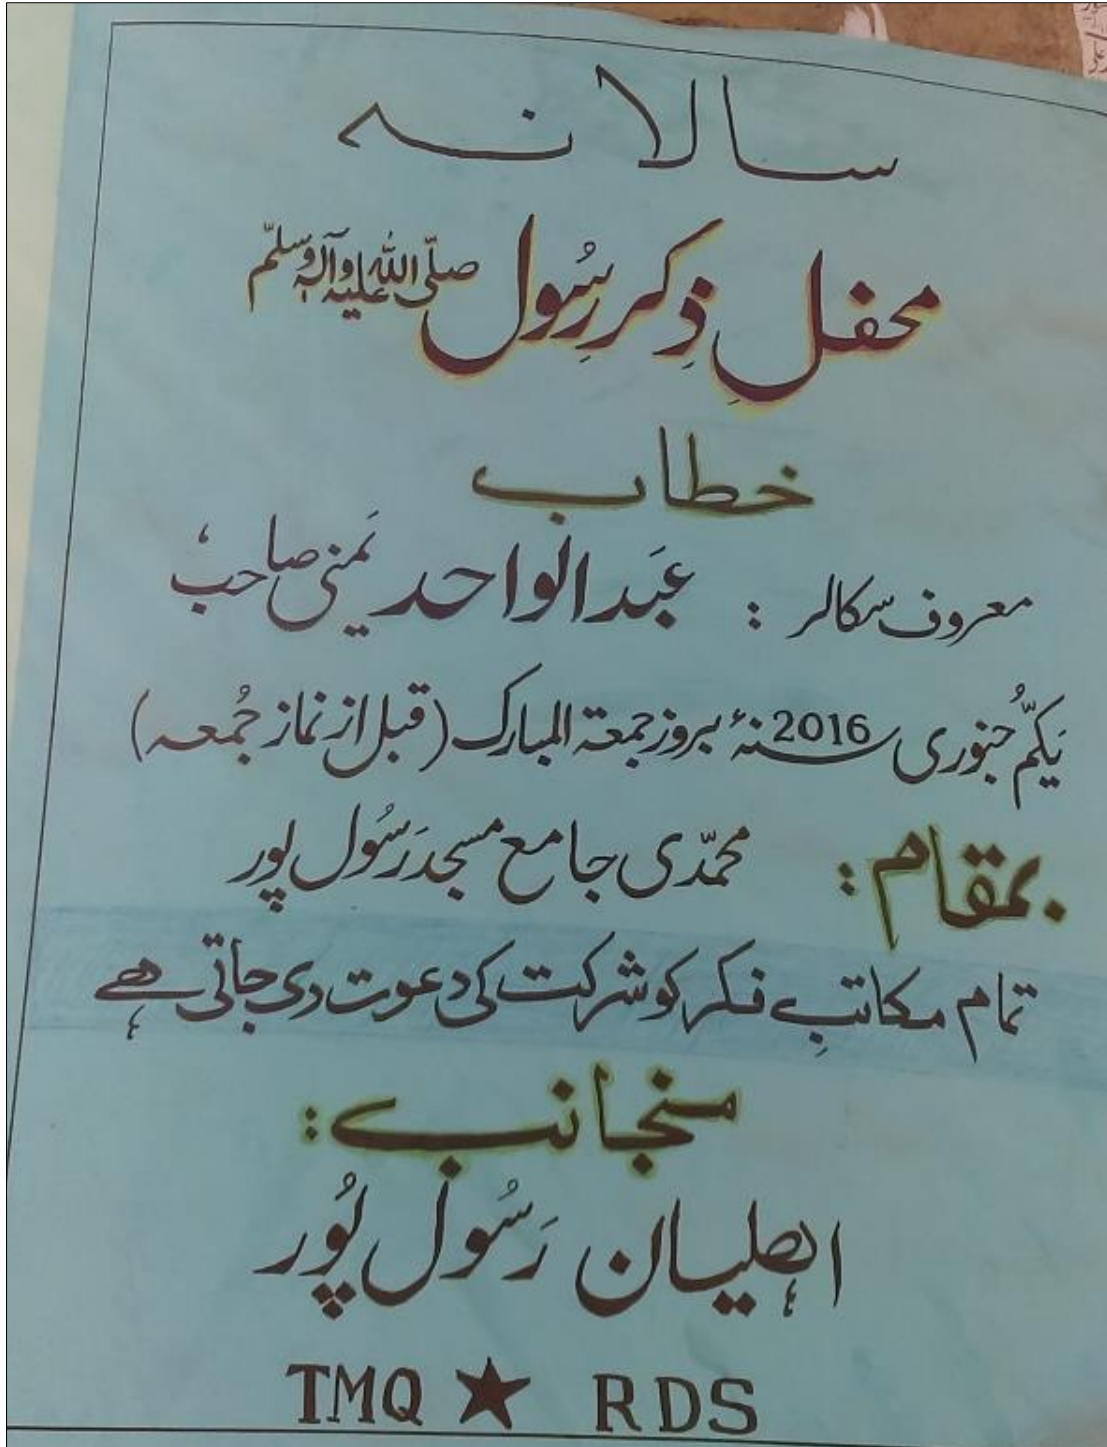 سالانہ
محفلِ ذِکرِ رسُول صلّی اللہ علیہ وآلہٖ وسلّم
خطاب
معروف سکالر : عَبدالواحد یَمنی صاحب
یَکمُّ جنوری 2016 سنہٴ بروز جمعۃ المبارک (قبل از نماز جُمعہ)
بمقام : محمّدی جامع مسجد رَسُول پور
تمام مکاتبِ فکر کو شرکت کی دعوت دی جاتی ہے
منجانب :
اہلیان رَسُول پُور
TMQ ★ RDS